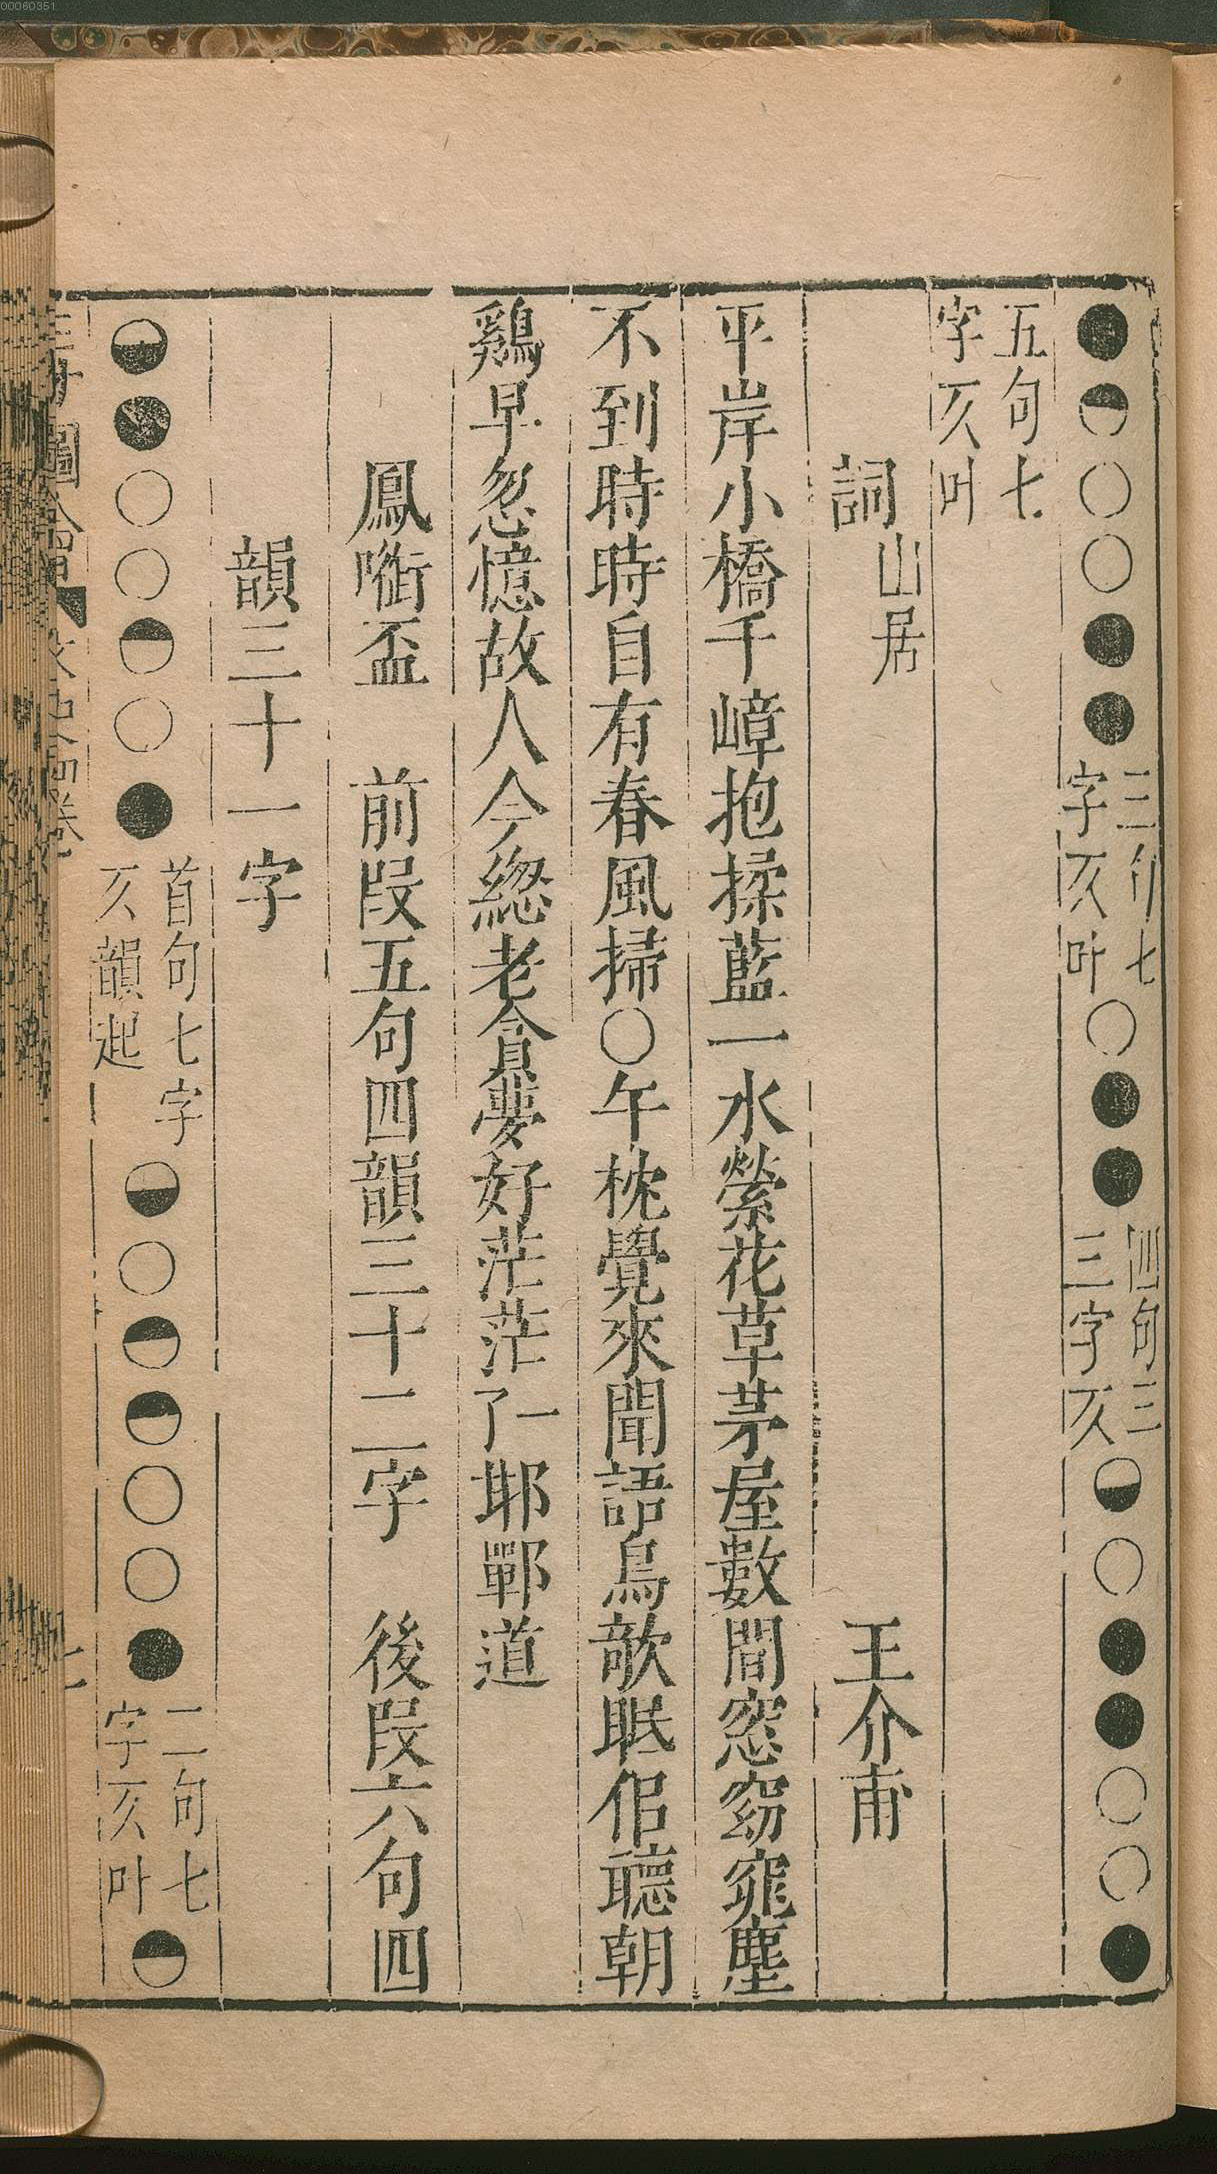 00060351
●◓○○●●三句七字仄叶○●●四句三三字仄◒○●●○○●
五句七字仄叶
詞山居 王介甫
平岸小橋千嶂抱揉藍一水縈花草茅屋數間窓窈窕塵
不到時時自有春風掃○午枕覺來聞語鳥欹眠佀聽朝
鷄早忽憶故人今緫老貪夢好茫茫了一邯鄲道
鳳啣盃 前段五句四韻三十二字 後段六句四
韻三十一字
◒●○○◓○●首句七字仄韻起◒○◓◓○○●二句七字仄叶◓